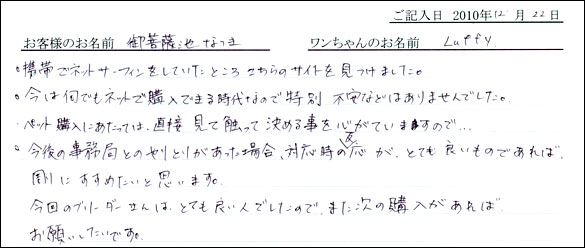 ご記入日 2010年12月22日
お客様のお名前 御菩薩池なつき ワンちゃんのお名前 Luffy
・携帯でネットサーフィンをしていたところこちらのサイトを見つけました。
・今は何でもネットで購入できる時代なので特別 不安などはありませんでした。
・ペット購入にあたっては、直接 見て触って決める事を心がていますので…
・今後の事務局とのやりとりがあった場合、対応時の反応が、とても良いものであれば、
周りにすすめたいと思います。
今回のブリーダーさんは、とても良い人でしたので、また次の購入があれば
お願いしたいです。